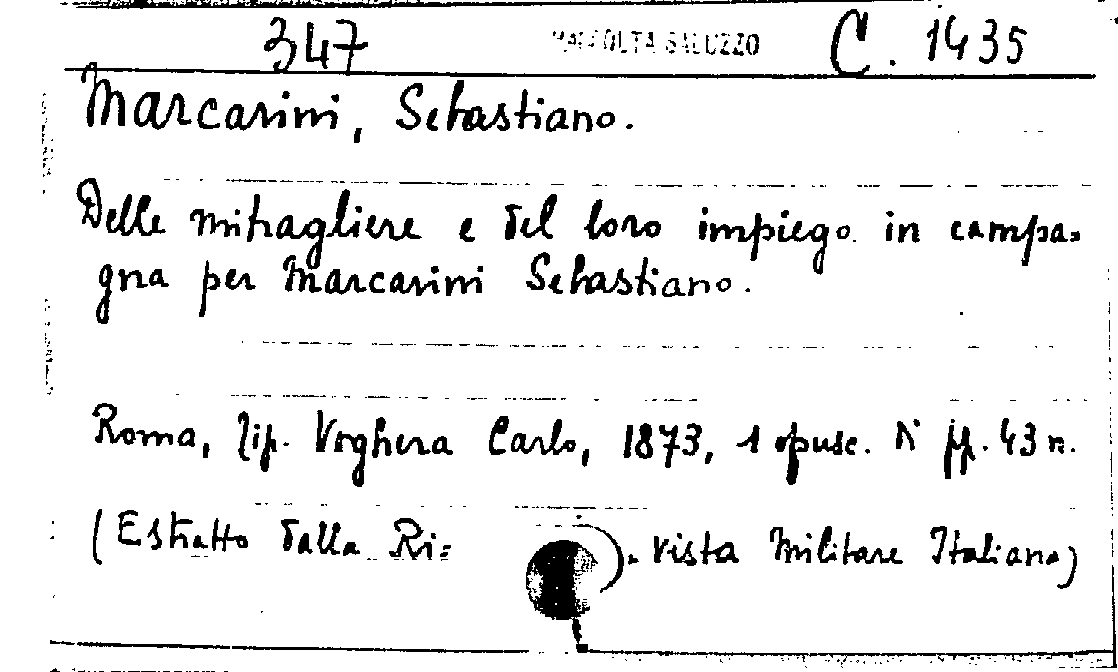 347 RACCOLTA SALUZZO C. 1435
Marcarini, Sebastiano.
Delle mitragliere e del loro impiego in campa=
gna per Marcarini Sebastiano.
Roma, Tip. Voghera Carlo, 1873, 1 opusc. di pp. 43 n.
(Estratto dalla Ri= vista Militare Italiana)